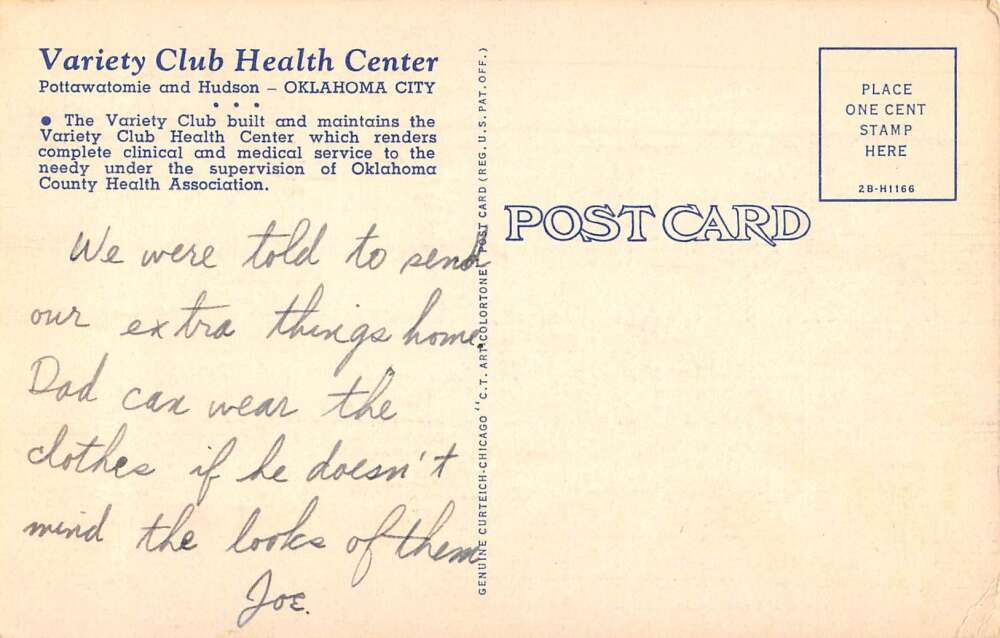 Variety Club Health Center
Pottawatomie and Hudson – OKLAHOMA CITY
• • •
● The Variety Club built and maintains the
Variety Club Health Center which renders
complete clinical and medical service to the
needy under the supervision of Oklahoma
County Health Association.
We were told to send
our extra things home.
Dad can wear the
clothes if he doesn't
mind the looks of them
Joe.
GENUINE CURTEICH-CHICAGO "C.T. ART-COLORTONE" POST CARD (REG. U.S. PAT. OFF.)
POST CARD
PLACE
ONE CENT
STAMP
HERE
2B-H1166